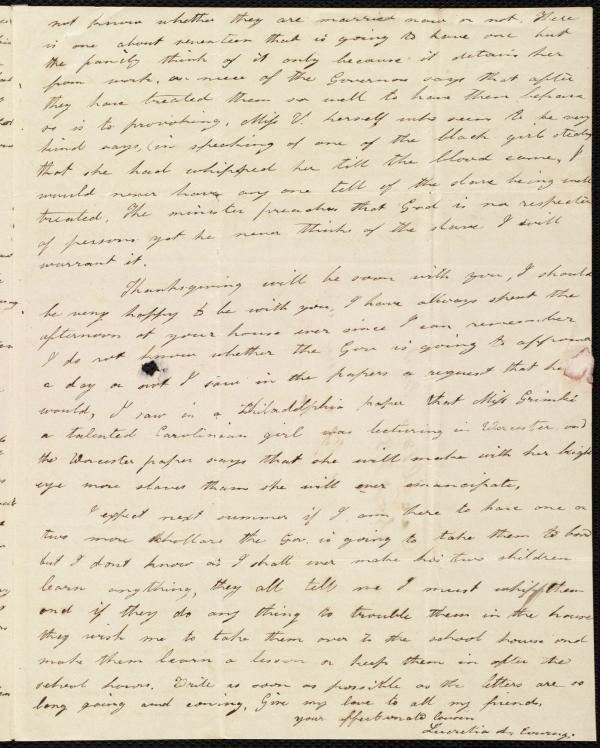 not know whether they are married now or not. Here
is one about seventeen that is going to have one but
the family think of it only because it detains her
from work, a niece of the Governor says that after
they have treated them so well to have them behave
so is to provoking. Miss V. herself who seem to be very
kind says, (in speaking of one of the black girl
that she had whipped her till the blood came, I
would never have any one tell of the slave being well
treated. The minister preaches that God is no respecter
of persons yet he never thinks of the slave I will
warrant it.
Thanksgiving will be soon with you, I should
be very happy to be with you, I have always spent the
afternoon at your house ever since I can remember
I do not know whether the Gov is going to appoint
a day or not I saw in the papers a request that he
would, I saw in a Philadelphia paper that Miss Grimké
a talented Carolinian girl was lecturing in Worcester and
the Worcester paper says that she will make with her bright
eye more slaves than she will ever emancipate,
I expect next summer if I am here to have one or
two more shollars the Gov. is going to take them to board
but I dont know as I shall ever make his two children
learn anything, they all tell me I must whip them
and if they do any thing to trouble them in the house
they wish me to take them over to the school house and
make them learn a lesson or keep them in after the
school hours. Write as soon as possible as the letters are so
long going and coming, Give my love to all my friends,
your affectionate Cousin
Lucretia